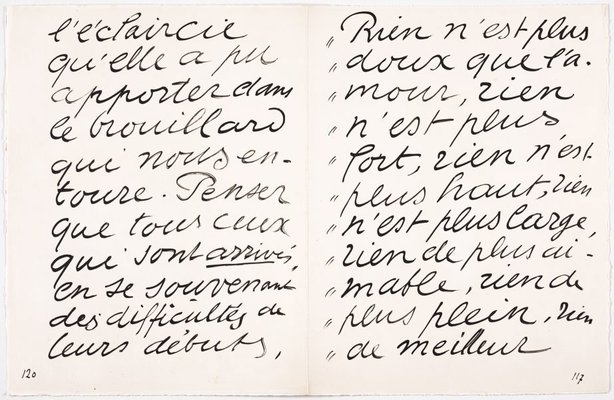 l'éclaircie
qu'elle a pu
apporter dans
le brouillard
qui nous en-
toure. Penser
que tous ceux
qui sont arrivés,
en se souvenant
des difficultés de
leurs débuts,
120
" Rien n'est plus
" doux que l'a-
" mour, rien
" n'est plus
" fort, rien n'est
" plus haut, rien
" n'est plus large,
" rien de plus ai-
" mable, rien de
" plus plein, rien
" de meilleur
117